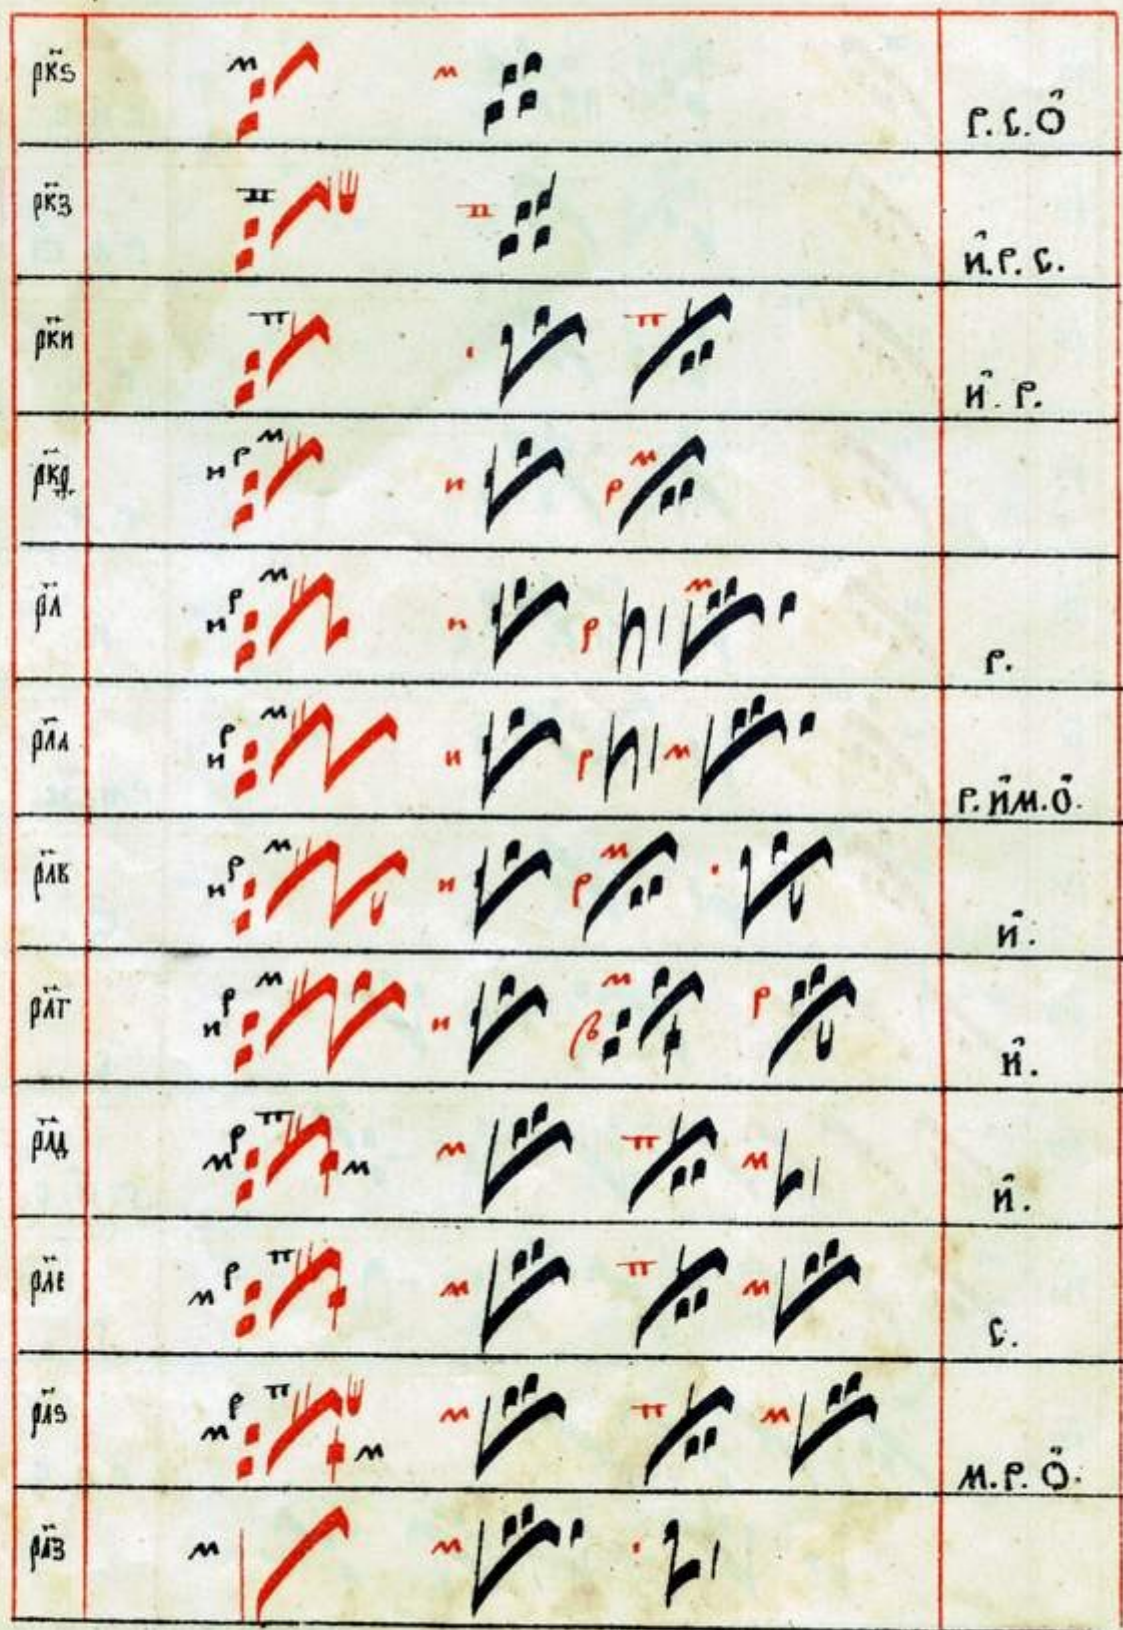 р҃кѕ м м Р. С. Ѻ
р҃кз п п И. Р. С.
р҃ки п п И. Р.
р҃кѳ и р м и р м
р҃л и р м и р м Р.
р҃ла и р м и р м Р. И М. Ѻ.
р҃лв и р м и р м И.
р҃лг и р м и в м р И.
р҃лд м р п м м п м И.
р҃лє м р п м п м С.
р҃лѕ м р п м м п м М. Р. Ѻ.
р҃лз м м